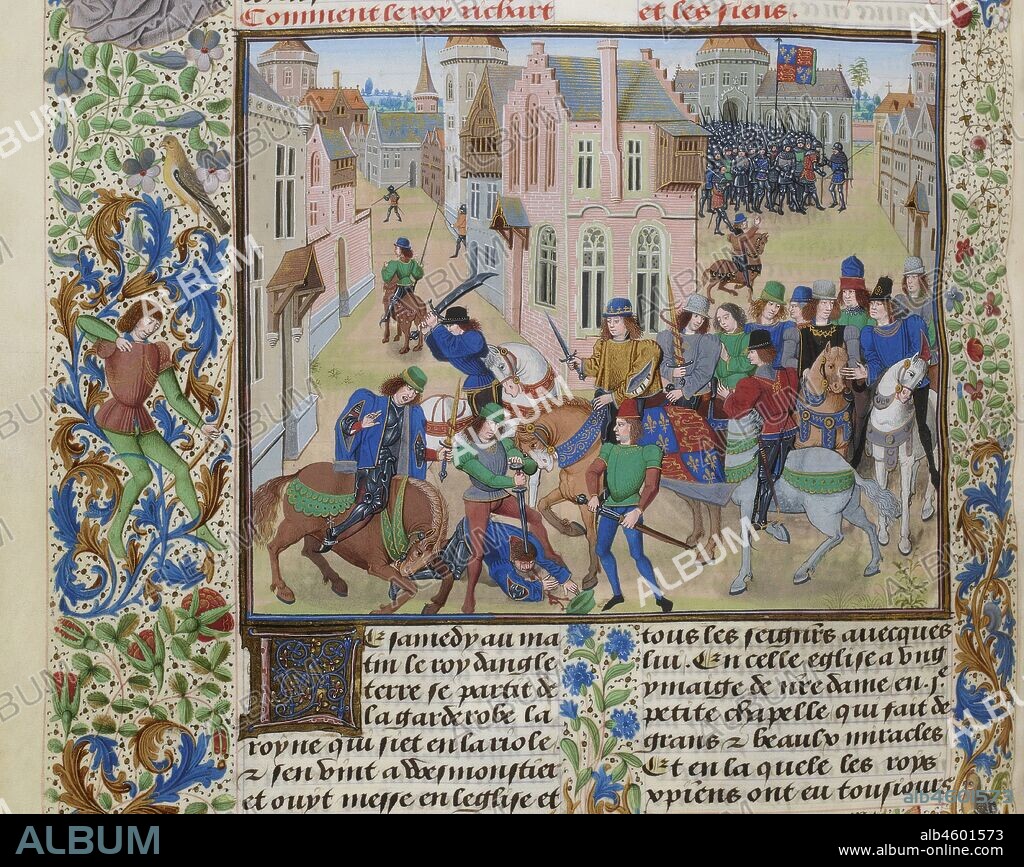 Comment le roy richart
et les siens.
Le samedy au ma
tin le roy dangle
terre se partit de
la garderobe la
royne qui siet en la riole
⁊ sen vint a wesmonstier
et ouyt messe en leglise et
tous les seignrs auecques
lui. En celle eglise a vng
ymaige de nre dame en
petite chapelle qui fait de
grans ⁊ beaulx miracles
Et en la quele les roys
xpiens ont eu tousiours
ALBUM
alb4601573
ALBUM
alb4601573
www.album-online.com